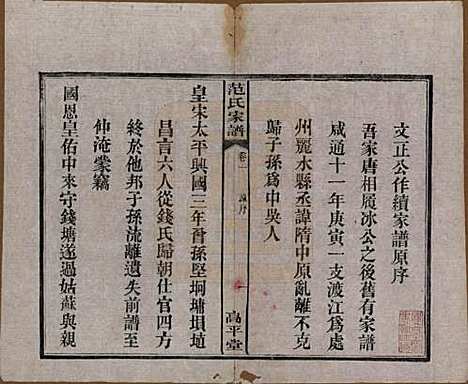 文正公作續家譜原序
吾家唐相履冰公之後舊有家譜
咸通十一年庚寅一支渡江爲處
州麗水縣丞諱隋中原亂離不克
歸子孫爲中吳人
范氏家譜
卷一
高平堂
皇宋太平興國三年曾孫堅坰墉塤埴
昌言六人從錢氏歸朝仕官四方
終於他邦子孫流離遺失前譜至
仲淹蒙竊
國恩皇佑中來守錢塘遂過姑蘇與親